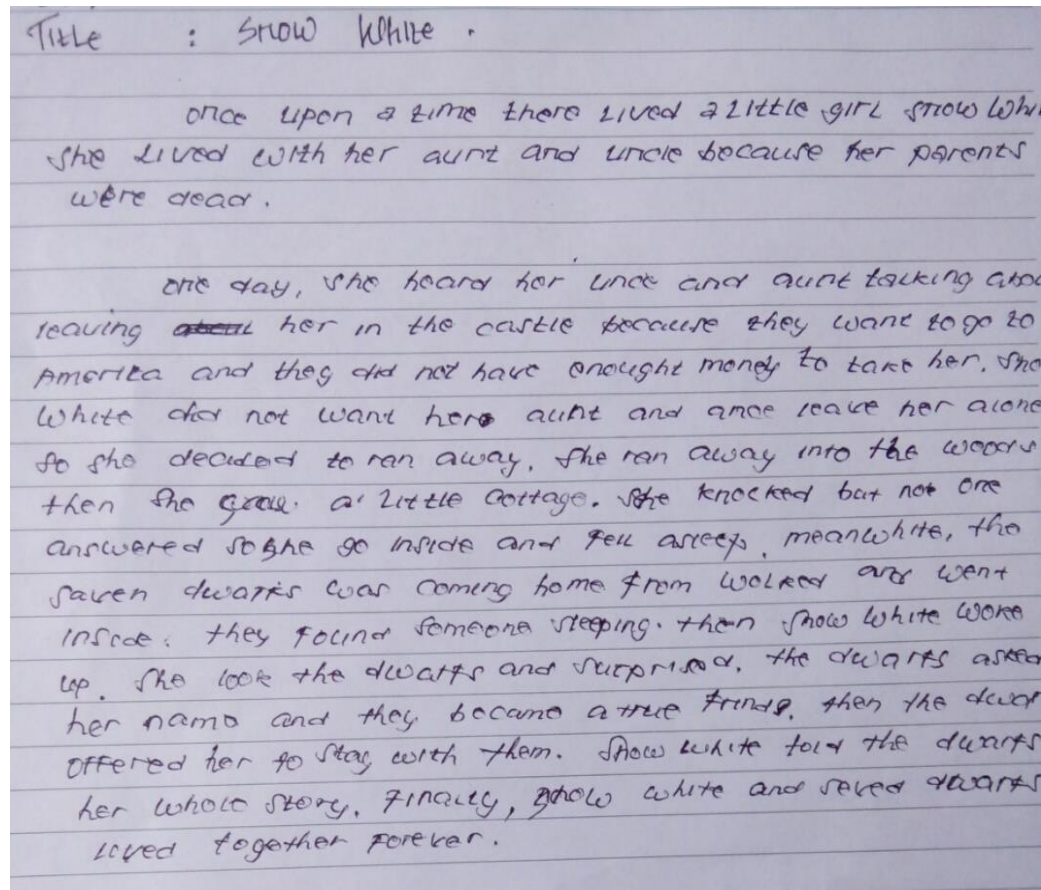 Title : Snow White .
once upon a time there lived a little girl snow Whi
she lived with her aunt and uncle because her parents
were dead .
one day, she heard her unce and aunt talking abou
leaving her in the castle because they want to go to
America and they did not have enought money to take her. Sno
White did not want her aunt and unce leave her alone
So she decided to ran away. She ran away into the woods
then she a little cottage. She knocked but not one
answered so she go inside and fell asleep. meanwhite, the
saven dwarfs was coming home from wolked and went
inside. they found someone sleeping. then Snow White woke
up. She look the dwarfs and surprised. the dwarfs asked
her name and they became a true frinds. then the dwar
offered her to stay with them. Snow white told the dwarfs
her whole story. Finally, snow white and seved dwarfs
lived together Forever.